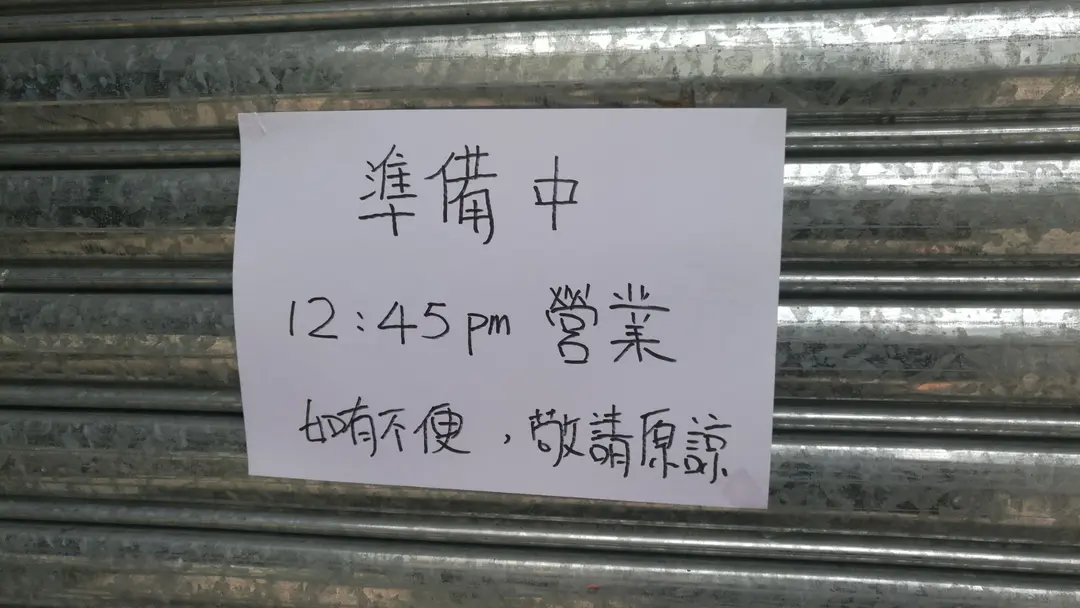 準備中
12:45pm 營業
如有不便，敬請原諒